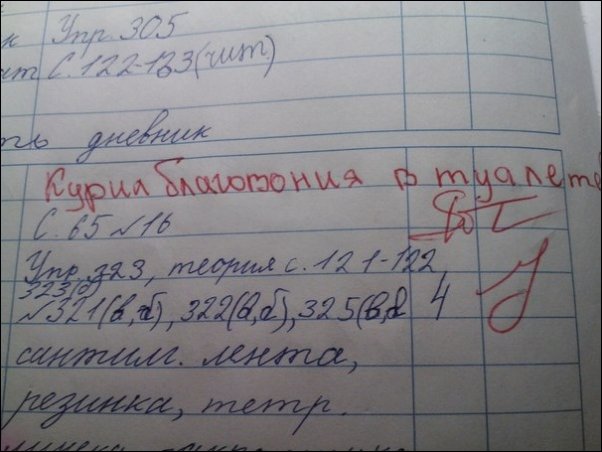 к Упр. 305
ит С. 122-123(чит.)
ть дневник
Курил благовония в туалете
С. 65 №16
Упр. 323, теория с. 121-122,
323(б)
№321(в,б), 322(а,б), 325(в, 4
сантим. лента,
резинка, тетр.